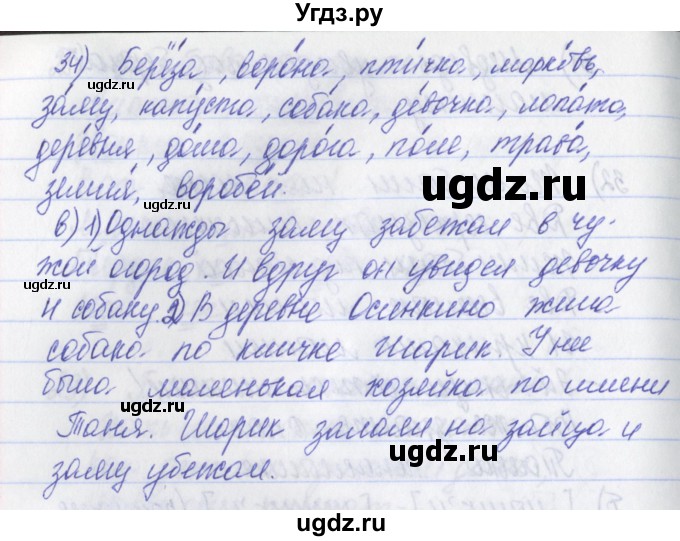 Угдз.ру
34) Берёза, воро́на, пти́чка, морко́вь,
за́яц, капу́ста, соба́ка, де́вочка, лопа́та,
дере́вня, до́ма, доро́га, по́ле, трава́,
земля́, воробе́й.
в) 1) Однажды заяц забежал в чу-
жой огород. И вдруг он увидел девочку
и собаку. 2) В деревне Осинкино жила
собака по кличке Шарик. У неё
была маленькая хозяйка по имени
Таня. Шарик залаял на зайца и
заяц убежал.
ugdz.ru
ugdz.ru
ugdz.ru
ugdz.ru
ugdz.ru
ugdz.ru
ugdz.ru
ugdz.ru